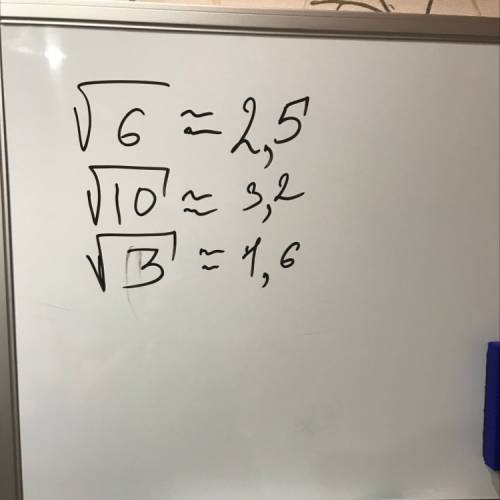 √6 ≈ 2,5
√10 ≈ 3,2
√3 ≈ 1,6